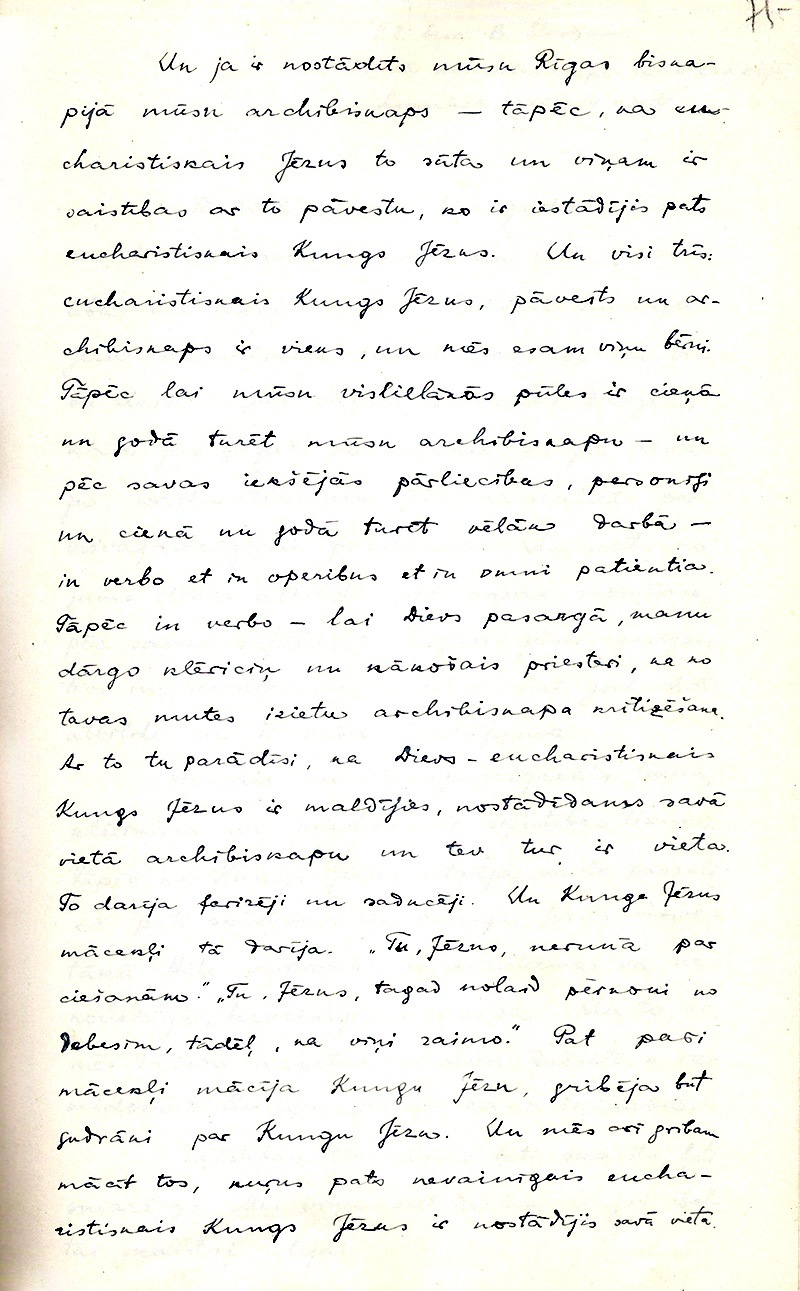 71-
Un ja ir nostādīts mūsu Rīgas biska-
pijā mūsu archibiskaps — tāpēc, ka eu-
charistiskais Jēzus to sūta un viņam ir
saistības ar to pāvestu, ko ir iestādījis pats
eucharistiskais Kungs Jēzus. Un visi trīs:
eucharistiskais Kungs Jēzus, pāvests un ar-
chibiskaps ir viens, un mēs esam viņu bērni.
Tāpēc lai mūsu vislielākās pūles ir cieņā
un godā turēt mūsu archibiskapu — un
pēc savas iekšējās pārliecības, personīgi
un cieņā un godā turēt vēlāk darbā —
in verbo et in operibus et in omni patientia.
Tāpēc in verbo — lai Dievs pasargā, manu
dārgo klēriciņ un nākošais priesteri, ka no
tavas mutes izietu archibiskapa kritizēšana.
Ar to tu parādīsi, ka Dievs — eucharistiskais
Kungs Jēzus ir maldījies, nostādīdams savā
vietā archibiskapu un tev tur ir vieta.
To darīja farizēji un saducēji. Un Kunga Jēzus
mācekļi tā darīja. „Tu, Jēzus, nerunā par
ciešanām.” „Tu, Jēzus, tagad nolaid pērkoni no
debesim, tādēļ, ka viņi zaimo.” Pat paši
mācekļi mācīja Kungu Jēzu, gribēja būt
gudrāki par Kungu Jēzu. Un mēs arī gribam
mācīt tos, kuŗus pats nevainīgais eucha-
ristiskais Kungs Jēzus ir nostādījis savā vietā.